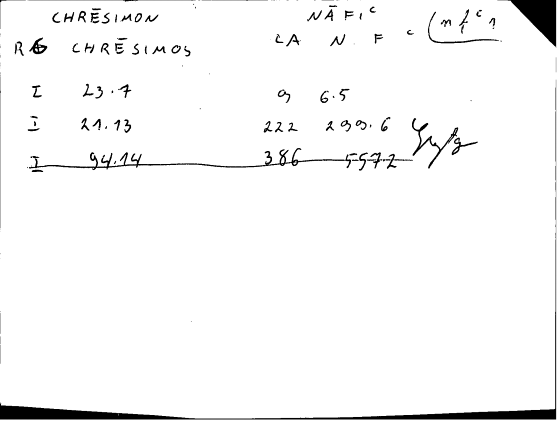 CHRĒSIMON NĀFIᶜ
R CHRĒSIMOS LA N F ᶜ
I 23.7 9 6.5
I 21.13 222 299.6
I 94.14 386 5572